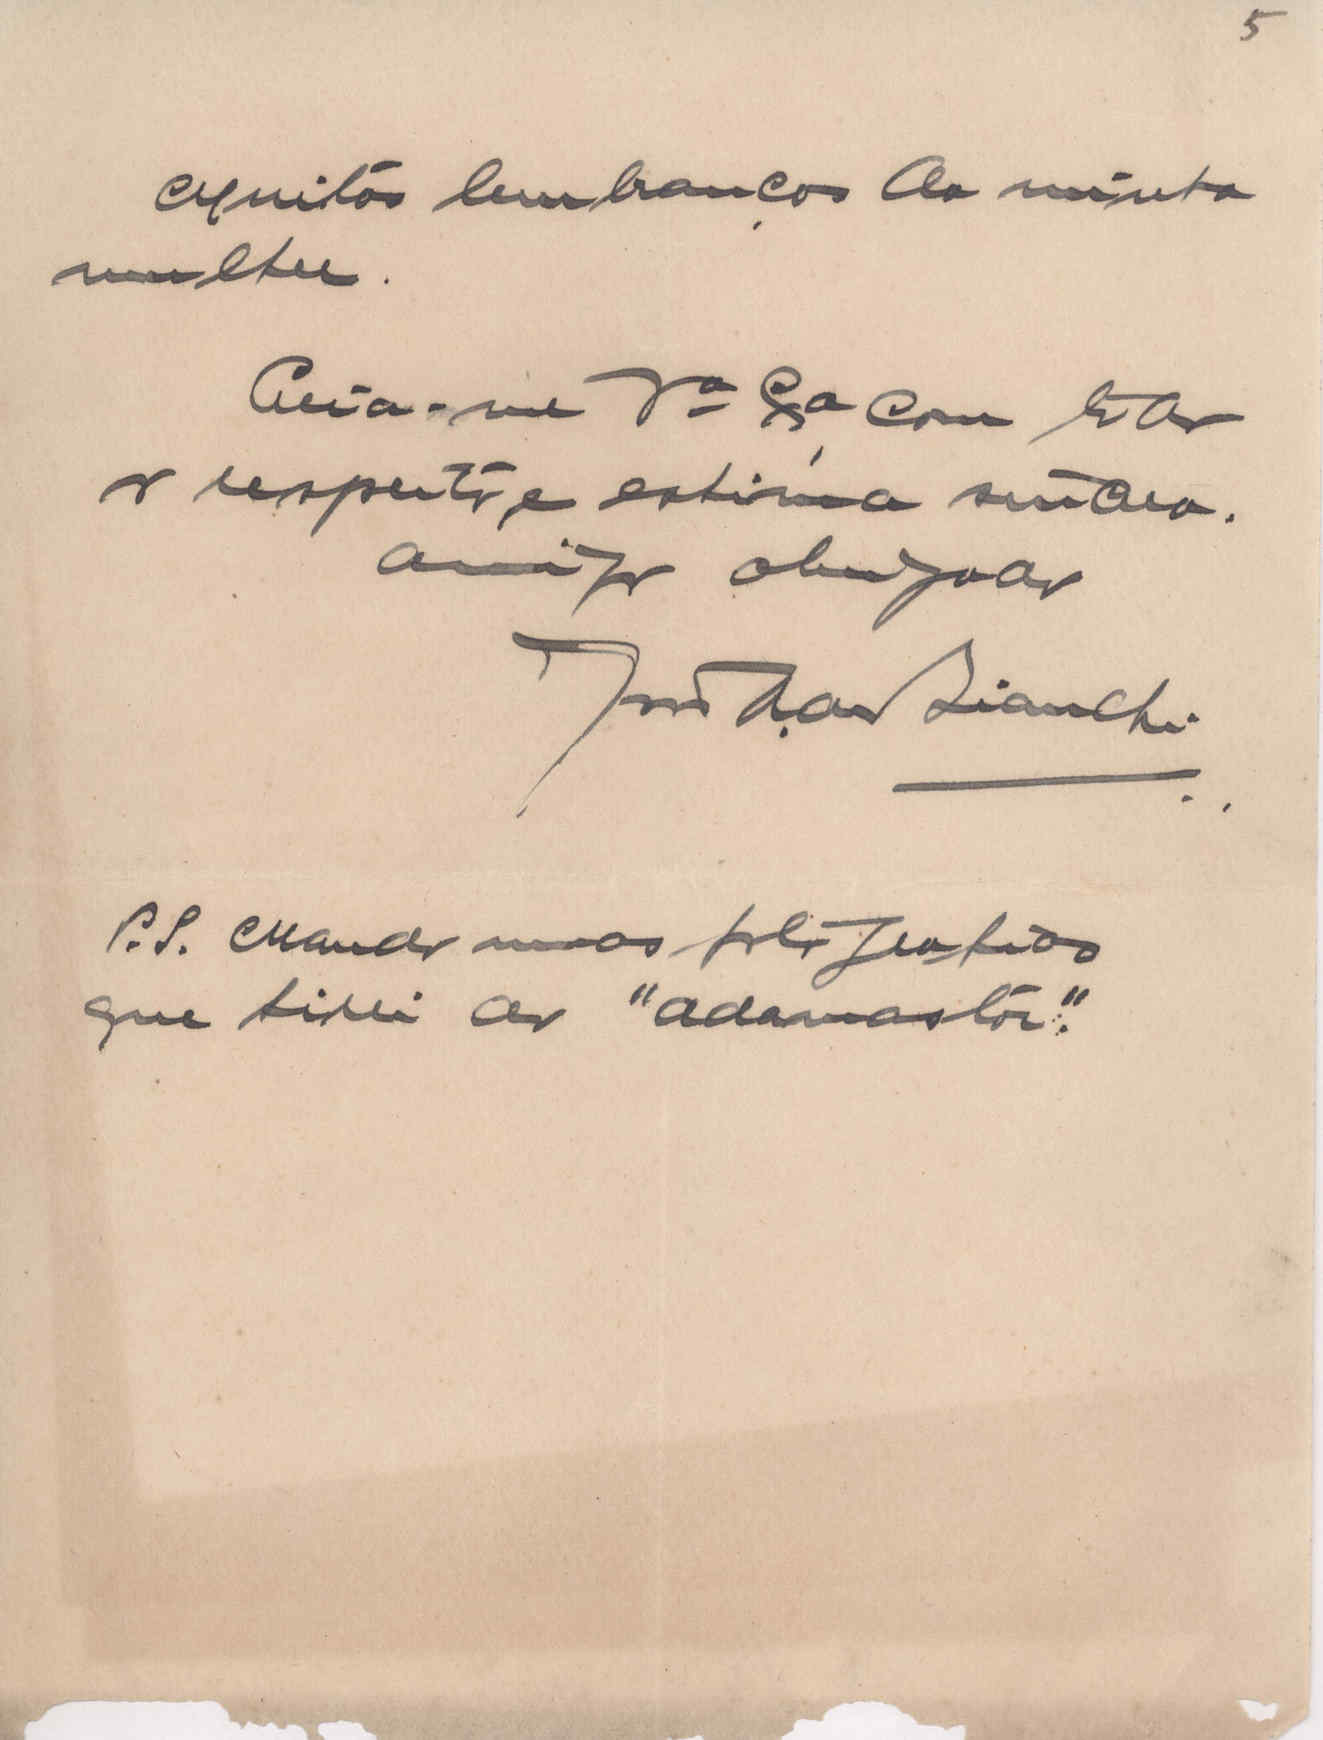 5
muitas lembranças da minha
mulher.
Creia-me V.ª Ex.ª com todo
o respeito e estima sincera.
amigo obrigado
José Bianchi
P.S. Mando umas fotografias
que tirei do "Adamastôr".